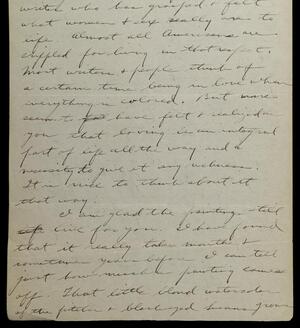 writer who has grasped & felt
what women & sex really are to
life. Almost all Americans are
crippled for living in that respect.
Most writers & people think of
a certain time being in love when
everything is colored. But more
seem to have felt & realized in
you that loving is an integral
part of life all the way and a
necessity to give it any
It is nice to think about it
that way.
I am glad the paintings still
live for you. I have found
that it really takes months &
sometimes years before I can tell
just how much a painting comes
off. That little cloud watercolor
of the pitcher &